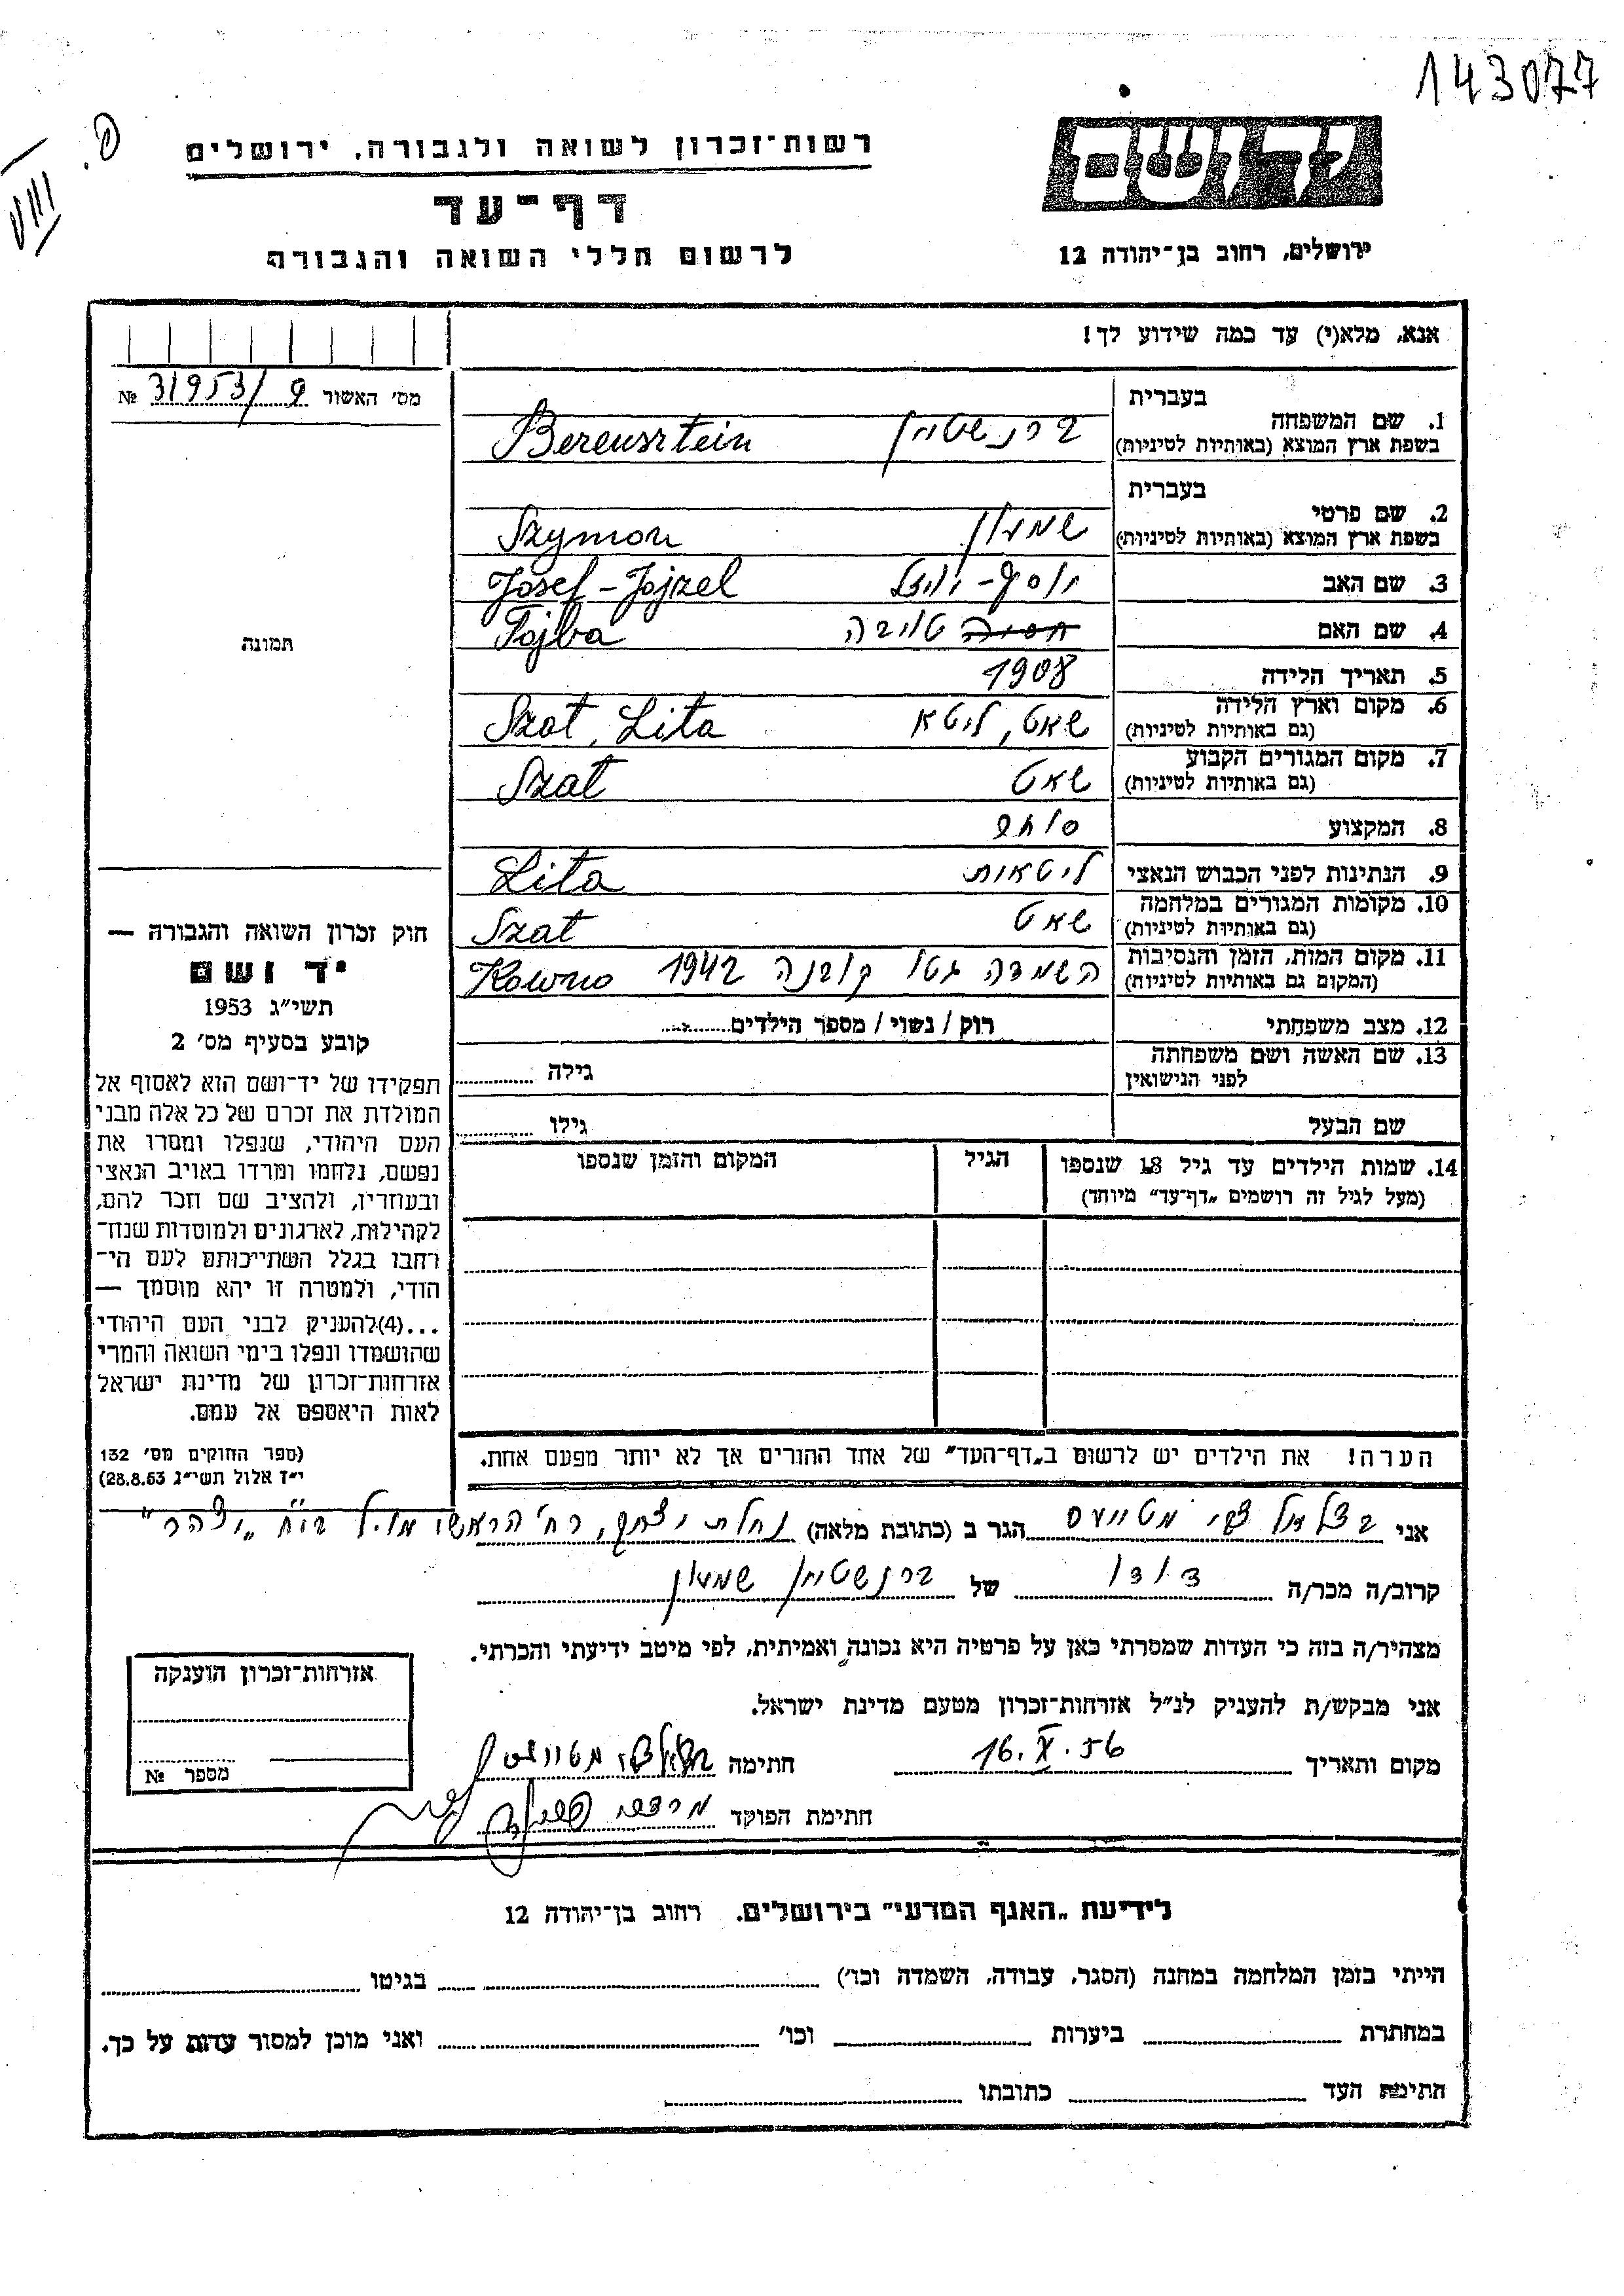 143077
VIII פ.
יד ושם
רשות־זכרון לשואה ולגבורה, ירושלים
דף־עד
לרשום חללי השואה והגבורה
ירושלים, רחוב בן־יהודה 12
אנא, מלא(י) עד כמה שידוע לך!
מס' האשור 9/31953 №
תמונה
1. שם המשפחה בעברית
בשפת ארץ המוצא (באותיות לטיניות)
ברנשטיין Berensztein
2. שם פרטי בעברית
בשפת ארץ המוצא (באותיות לטיניות)
שמעון Szymon
3. שם האב יוסף - יוזל Josef - Jojzel
4. שם האם טויבה Tojba
5. תאריך הלידה 1908
6. מקום וארץ הלידה
(גם באותיות לטיניות)
שאט, ליטא Szat, Lita
7. מקום המגורים הקבוע
(גם באותיות לטיניות)
שאט Szat
8. המקצוע סוחר
9. הנתינות לפני הכבוש הנאצי ליטאות Lita
10. מקומות המגורים במלחמה
(גם באותיות לטיניות)
שאט Szat
11. מקום המות, הזמן והנסיבות
(המקום גם באותיות לטיניות)
השמדה גטו קובנה 1942 Kowno
12. מצב משפחתי רוק / נשוי / מספר הילדים
13. שם האשה ושם משפחתה
לפני הנישואין
גילה
שם הבעל גילו
14. שמות הילדים עד גיל 18 שנספו
(מעל לגיל זה רושמים „דף־עד" מיוחד)
הגיל
המקום והזמן שנספו
חוק זכרון השואה והגבורה —
יד ושם
תשי"ג 1953
קובע בסעיף מס' 2
תפקידו של יד־ושם הוא לאסוף אל
המולדת את זכרם של כל אלה מבני
העם היהודי, שנפלו ומסרו את
נפשם, נלחמו ומרדו באויב הנאצי
ובעוזריו, ולהציב שם וזכר להם,
לקהילות, לארגונים ולמוסדות שנח־
רבו בגלל השתייכותם לעם הי־
הודי, ולמטרה זו יהא מוסמך —
...(4)להעניק לבני העם היהודי
שהושמדו ונפלו בימי השואה והמרי
אזרחות־זכרון של מדינת ישראל
לאות היאספם אל עמם.
(ספר החוקים מס' 132
י"ז אלול תשי"ג 28.8.53)
הערה! את הילדים יש לרשום ב„דף־העד" של אחד ההורים אך לא יותר מפעם אחת.
אני בצלאל צבי מטוועס הגר ב (כתובת מלאה) נחלת יצחק, רח' הראשי מול בית „יצהר"
קרוב/ה מכר/ה דודו של ברנשטיין שמעון
מצהיר/ה בזה כי העדות שמסרתי כאן על פרטיה היא נכונה ואמיתית, לפי מיטב ידיעתי והכרתי.
אני מבקש/ת להעניק לנ"ל אזרחות־זכרון מטעם מדינת ישראל.
מקום ותאריך 16.X.56 חתימה
חתימת הפוקד
אזרחות־זכרון הוענקה
מספר №
לידיעת „האגף המדעי" בירושלים. רחוב בן־יהודה 12
הייתי בזמן המלחמה במחנה (הסגר, עבודה, השמדה וכו') בגיטו
במחתרת ביערות וכו' ואני מוכן למסור עדות על כך.
חתימת העד כתובתו